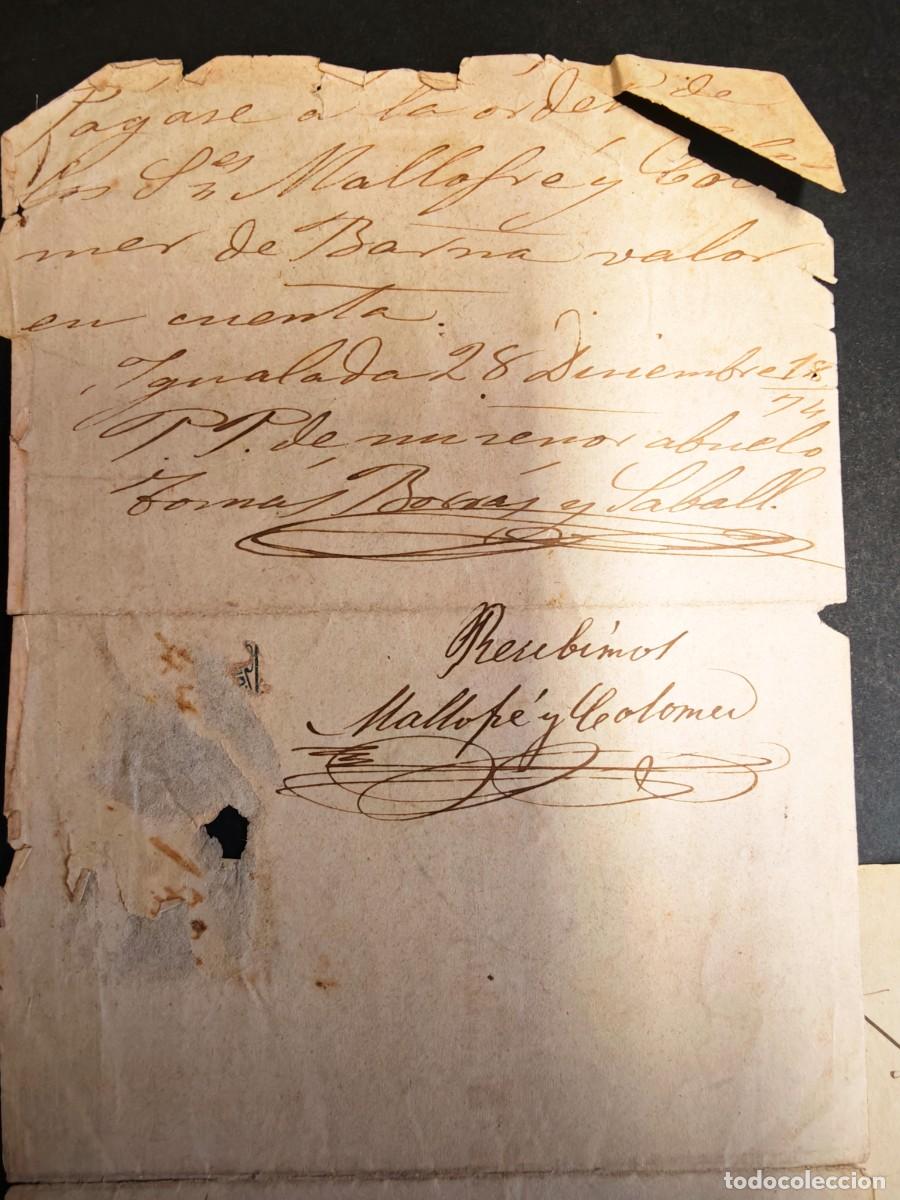 Pagase a la orden de
los S.es Mallofré y Colo
mer de Barna valor
en cuenta.
Igualada 28 Diciembre 1874
P. P. de mi señor abuelo
Tomás Borrás y Saball.
Recibimos
Mallofré y Colomer
todocoleccion